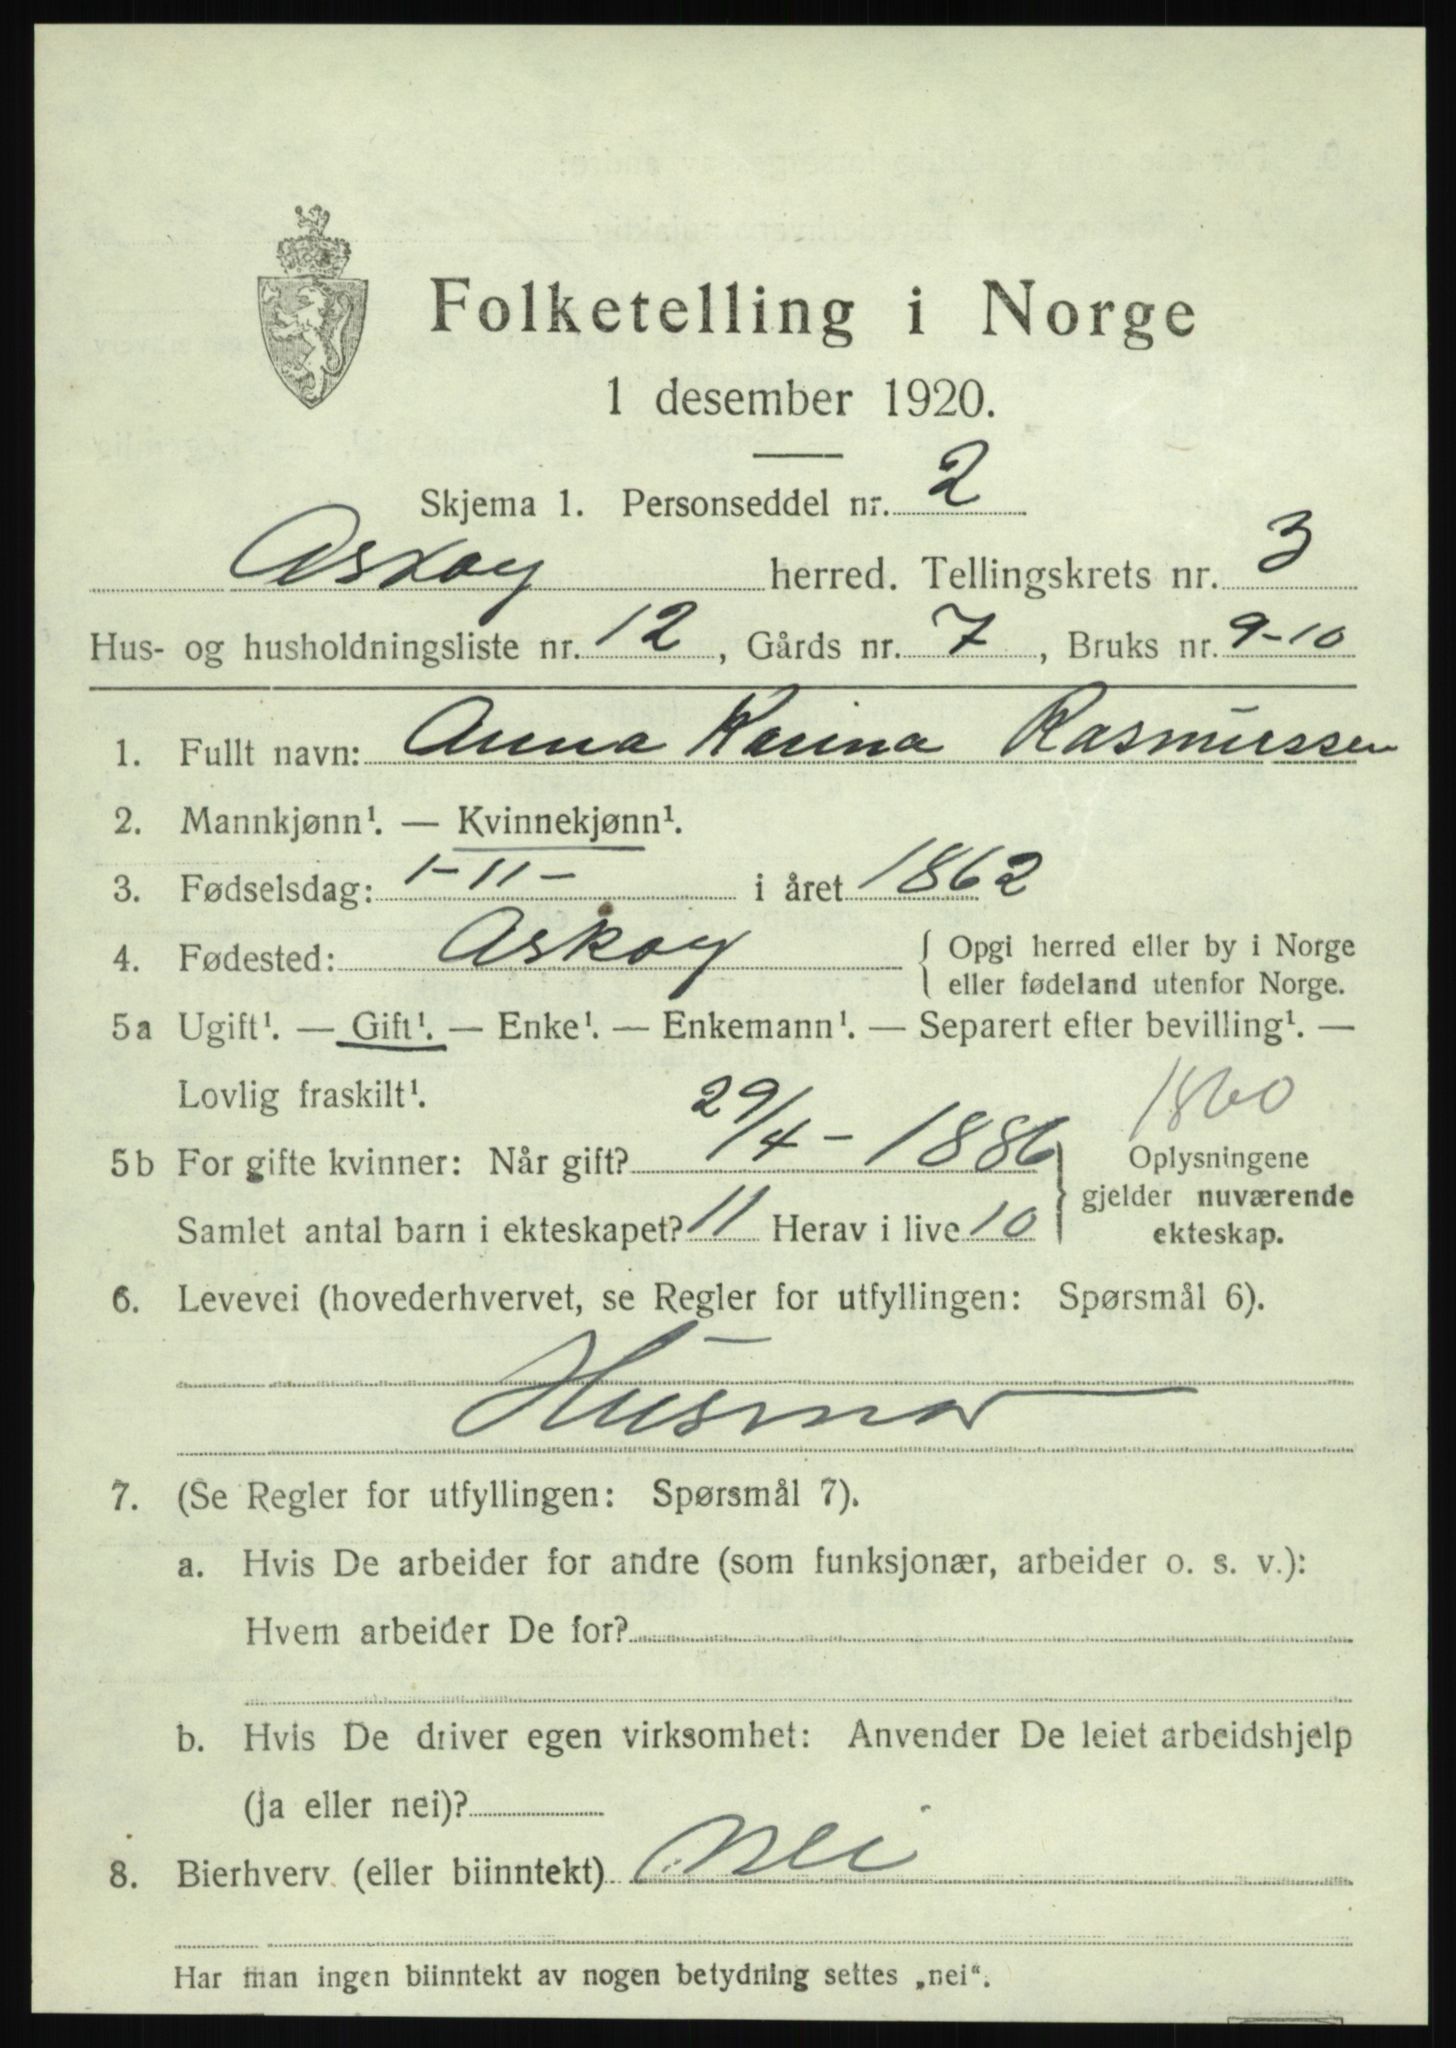 Folketelling i Norge
1 desember 1920.
Skjema 1. Personseddel nr. 2
Askøy herred. Tellingskrets nr. 3
Hus- og husholdningsliste nr. 12, Gårds nr. 7, Bruks nr. 9-10
1. Fullt navn: Anna Karina Rasmussen
2. Mannkjønn¹. — Kvinnekjønn¹.
3. Fødselsdag: 1-11- i året 1862
4. Fødested: Askøy { Opgi herred eller by i Norge
eller fødeland utenfor Norge.
5a Ugift¹. — Gift¹. — Enke¹. — Enkemann¹. — Separert efter bevilling¹. —
Lovlig fraskilt¹.
1860
5b For gifte kvinner: Når gift? 29/4-1886
Samlet antal barn i ekteskapet? 11 Herav i live 10
} Oplysningene
gjelder nuværende
ekteskap.
6. Levevei (hovederhvervet, se Regler for utfyllingen: Spørsmål 6).
Husmor
7. (Se Regler for utfyllingen: Spørsmål 7).
a. Hvis De arbeider for andre (som funksjonær, arbeider o. s. v.):
Hvem arbeider De for?
b. Hvis De driver egen virksomhet: Anvender De leiet arbeidshjelp
(ja eller nei)?
8. Bierhverv (eller biinntekt) Nei
Har man ingen biinntekt av nogen betydning settes „nei“.